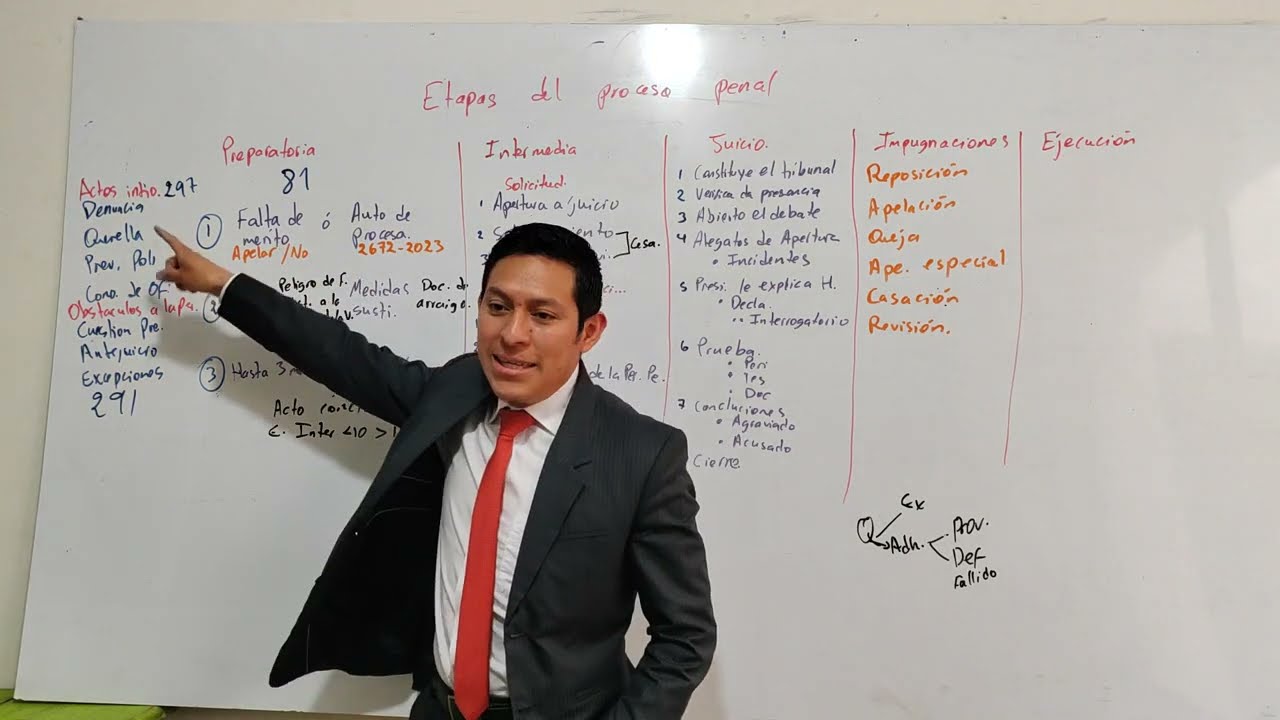 Etapas del proceso penal
Preparatoria
81
Actos intro. 297
Denuncia
Querella
Prev. Poli
Cono. de Of.
Obstaculos a la Pa.
Cuestion Pre.
Antejuicio
Excepciones
291
1 Falta de merito ó Auto de Procesa.
Apelar / No 2672-2023
2 Peligro de F.
a la
Medidas susti.
Doc. d
arraigo.
3 Hasta 3 m
Acto
E. Inter <10 >1
Intermedia
Solicitud.
1 Apertura a juicio
2
Cesa.
3
de la Per. Pe.
Juicio.
1 Constituye el tribunal
2 Verifica da presencia
3 Abierto el debate
4 Alegatos de Apertura
• Incidentes
5 Presi. le explica H.
• Decla.
•• Interrogatorio
6 Prueba.
• Peri
• Tes
• Doc
7 Concluciones
• Agraviado
• Acusado
Cierre
Impugnaciones
Reposición
Apelación
Queja
Ape. especial
Casación
Revisión.
Ejecución
Q
Ex
Adh.
Prov.
Def
fallido